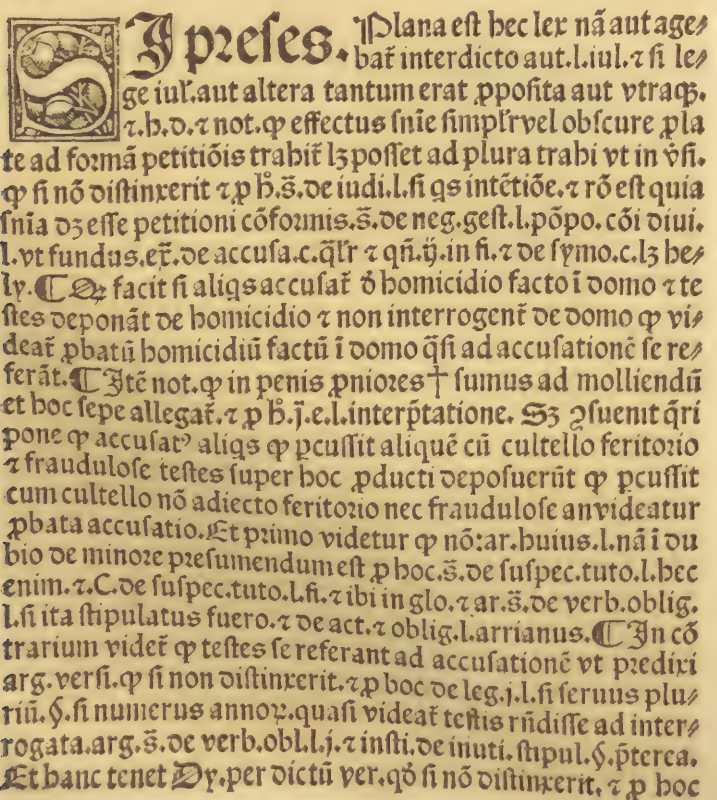 SI preses. Plana est hec lex nā aut age⸗
bat̄ interdicto aut.l.iul.⁊ si le⸗
ge iul'.aut altera tantum erat ꝓposita aut vtraqꝫ.
⁊.h.d.⁊ not.ꝙ effectus snīe simpl'r vel obscure ꝓla
te ad formā petitiōis trahit̄ lꝫ posset ad plura trahi vt in v̓si.
ꝙ si nō distinxerit ⁊ ꝓ h̄.s̄.de iudi.l.si qs intētiōe.⁊ rō est quia
snīa dꝫ esse petitioni cōformis.s̄.de neg.gest.l.pōpo.cōi diui.
l.vt fundus.ex̄.de accusa.c.q̄l'r ⁊ qn̄.ij.in fi.⁊ de symo.c.lꝫ he⸗
ly. ¶ Qꝫ facit si aliqs accusat̄ d̓ homicidio facto ī domo ⁊ te
stes deponāt de homicidio ⁊ non interrogent̄ de domo ꝙ vi⸗
deat̄ ꝓbatū homicidiū factū ī domo q̄si ad accusationē se re⸗
ferāt. ¶ Itē not.ꝙ in penis ꝓniores † sumus ad molliendū
et hoc sepe allegat̄.⁊ ꝓ h̄.j̄.e.l.interp̄tatione. Sꝫ ꝯsueuit q̄ri
pone ꝙ accusatꝰ aliqs ꝙ ꝑcussit aliquē cū cultello feritorio
⁊ fraudulose testes super hoc ꝓducti deposuerūt ꝙ ꝑcussit
cum cultello nō adiecto feritorio nec fraudulose an videatur
ꝓbata accusatio. Et primo videtur ꝙ nō:ar.huius.l.nā ī du
bio de minore presumendum est ꝓ hoc.s̄.de suspec.tuto.l.hec
enim.⁊.C.de suspec.tuto.l.fi.⁊ ibi in glo.⁊ ar.s̄.de verb.oblig.
l.si ita stipulatus fuero.⁊ de act.⁊ oblig.l.arrianus. ¶ In cō
trarium videt̄ ꝙ testes se referant ad accusationē vt predixi
arg.versi.ꝙ si non distinxerit.⁊ ꝓ hoc de leg.j.l.si seruus plu⸗
riū.§.si numerus annoꝝ.quasi videat̄ testis rn̄disse ad inter⸗
rogata.arg.s̄.de verb.obl.l.j.⁊ insti.de inuti.stipul.§.p̄terea.
Et hanc tenet Dy.per dictū ver.qd̓ si nō distinxerit. ⁊ ꝓ hoc